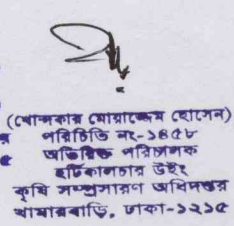 (খোন্দকার মোয়াজ্জেম হোসেন)
পরিচিতি নং-১৪৫৮
অতিরিক্ত পরিচালক
হর্টিকালচার উইং
কৃষি সম্প্রসারণ অধিদপ্তর
খামারবাড়ি, ঢাকা-১২১৫